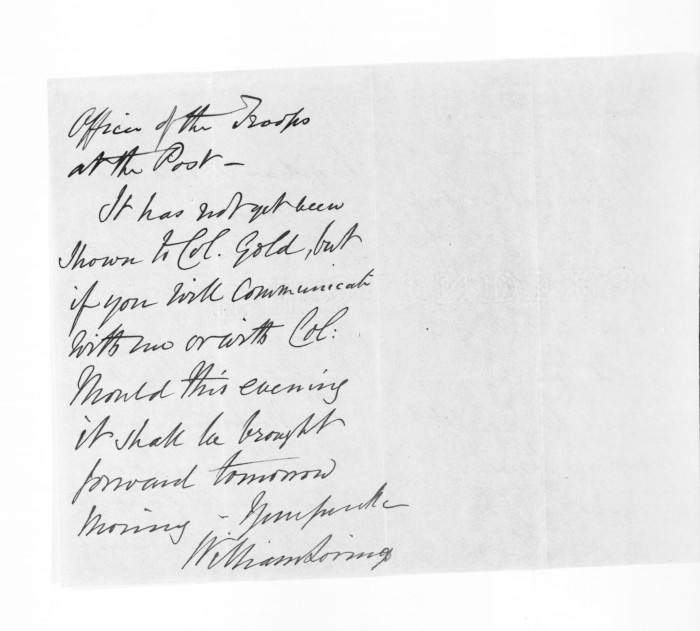 Officer of the Troops
at the Post —
It has not yet been
shown to Col. Gold, but
if you will communicate
with me or with Col:
Mould this evening
it shall be brought
forward tomorrow
morning —
William Loring